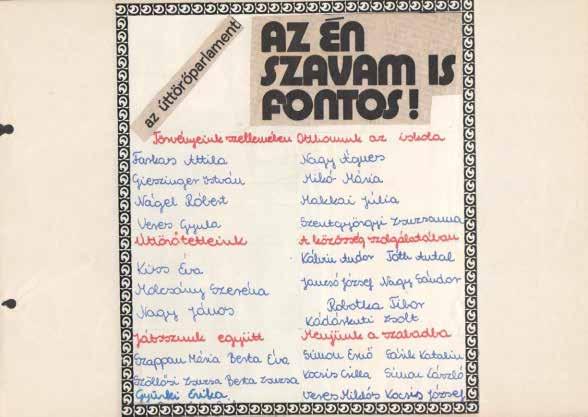 az úttörőparlament
AZ ÉN
SZAVAM IS
FONTOS!
Törvényeink szellemében
Farkas Attila
Gieszinger István
Nágel Róbert
Veres Gyula
Otthonunk az iskola
Nagy Ágnes
Mikó Mária
Makkai Júlia
Szentgyörgyi Zsuzsanna
Úttörőtetteink
Kiss Éva
Molcsány Szeréna
Nagy János
A közösség szolgálatában
Andor Tóth Antal
Jancsó József Nagy Sándor
Robotka Tibor
Kádárkuti Zsolt
Játsszunk együtt
Szappan Mária Berta Éva
Szöllősi Zsuzsa Berta Zsuzsa
Gyürki Erika
Menjünk a szabadba
Simon Ernő Katalin
Kocsis Csilla Simon László
Veres Miklós Kocsis József